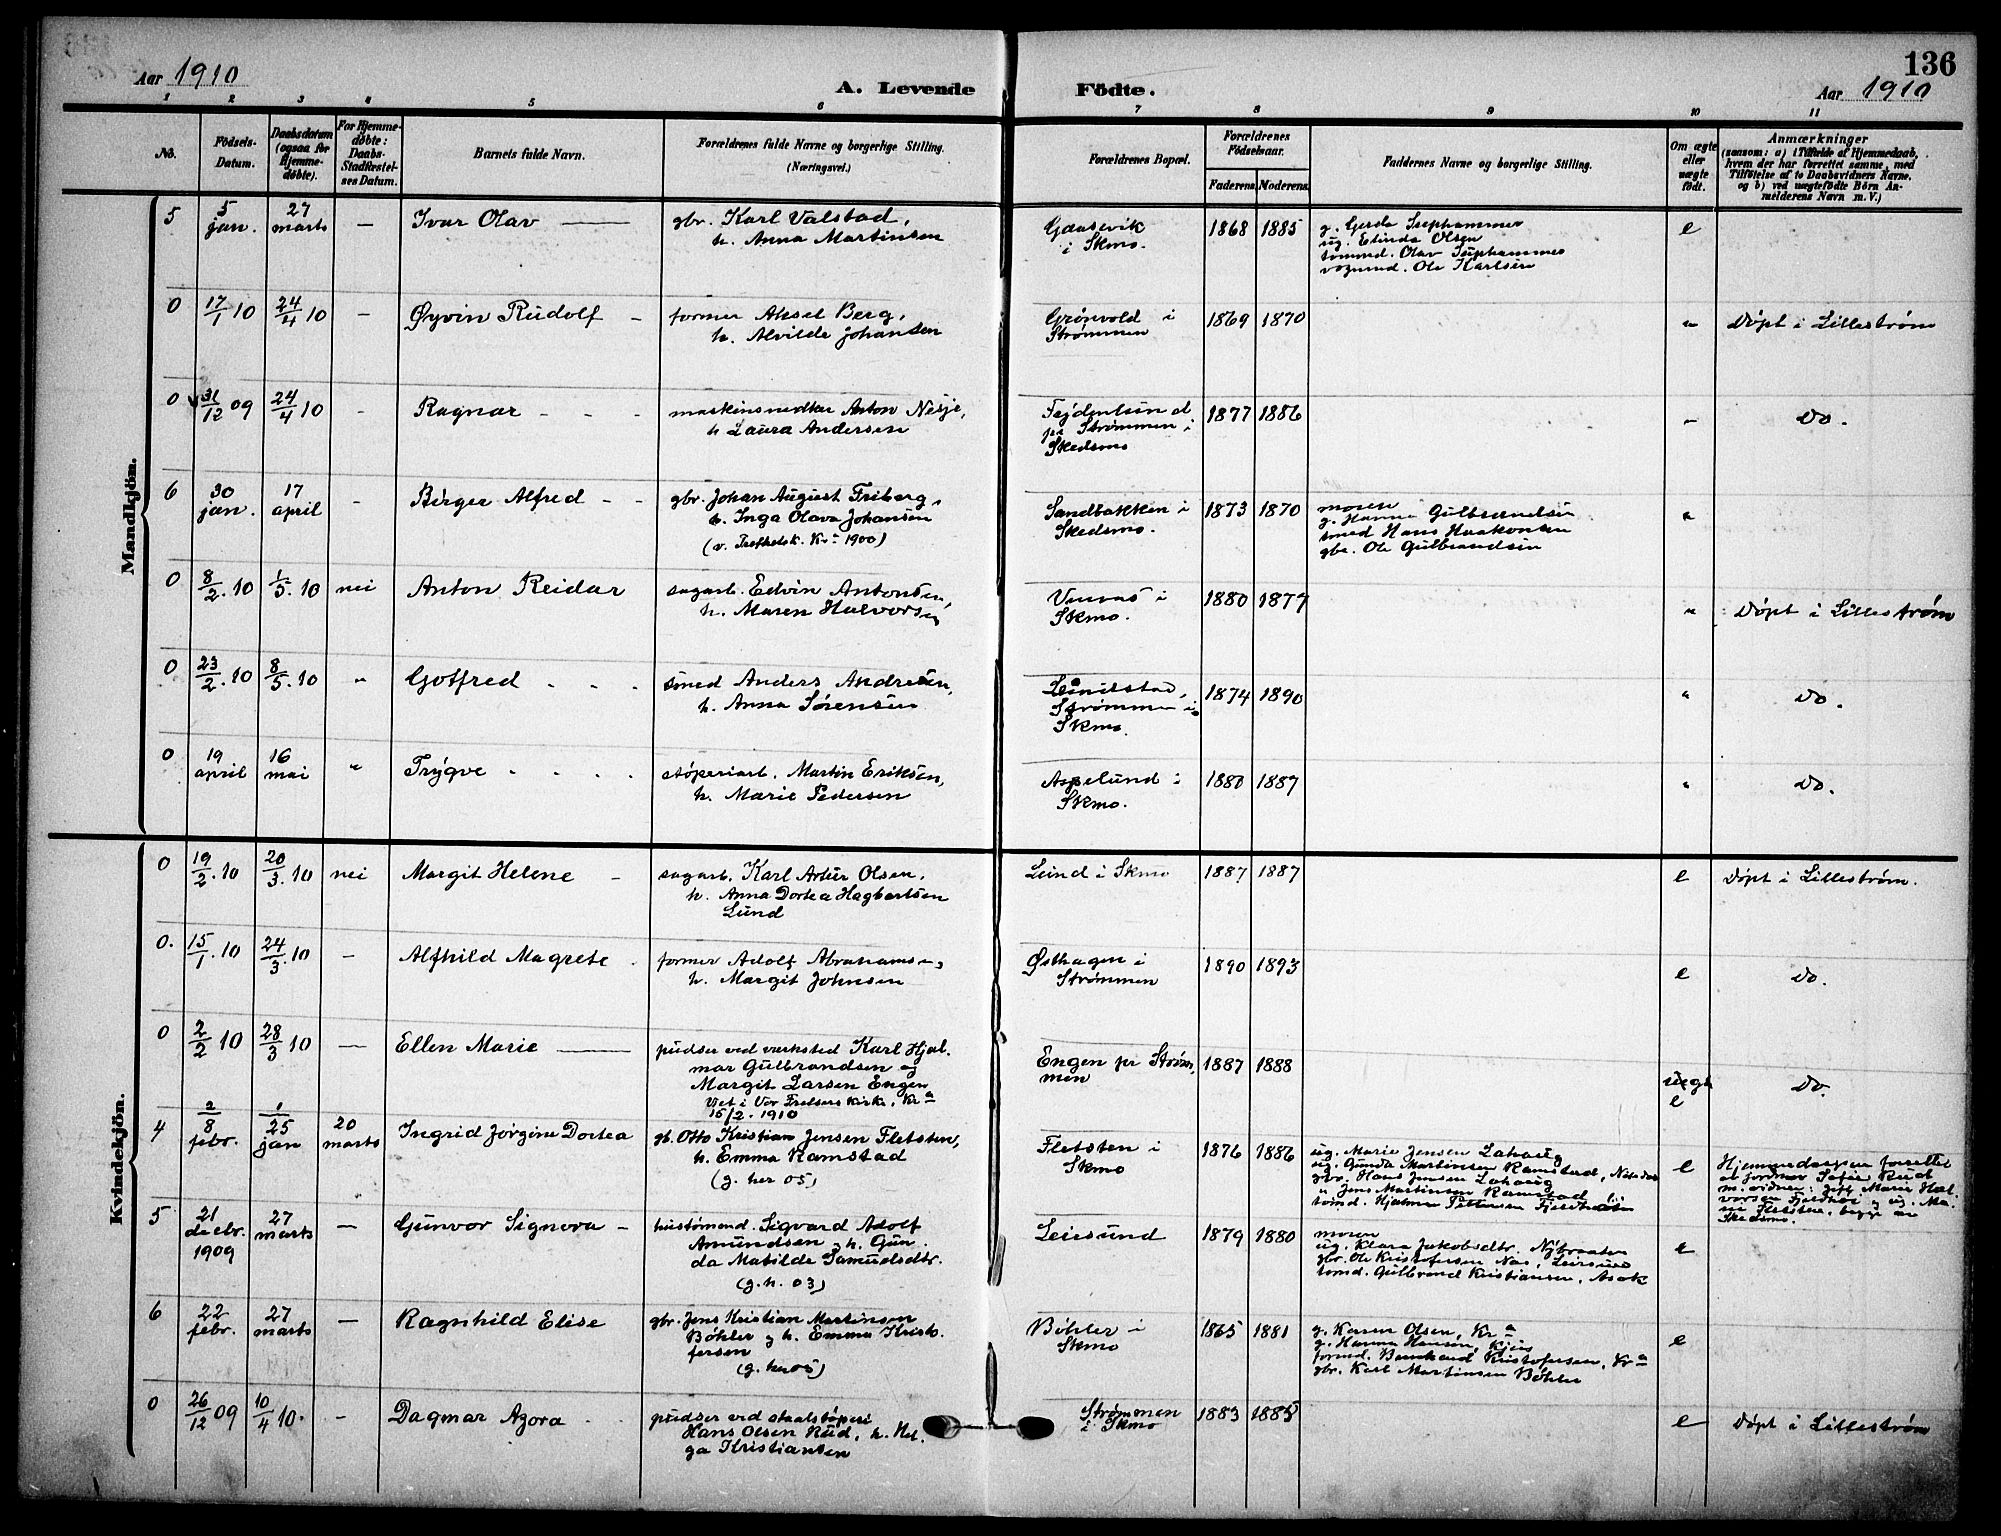 136
Aar 1910
A. Levende Födte.
Aar 1910
1 2 3 4 5 6 7 8 9 10 11
No.
Födsels-
Datum.
Daabsdatum
(ogsaa for
Hjemme-
döbte).
For Hjemme-
döbte:
Daabs-
Stadfæstel-
ses Datum.
Barnets fulde Navn.
Forældrenes fulde Navne og borgerlige Stilling.
(Næringsvei.)
Forældrenes Bopæl.
Forældrenes
Födselsaar.
Faderens.
Moderens.
Faddernes Navne og borgerlige Stilling.
Om ægte
eller
uægte
födt.
Anmærkninger
(saasom: a) i Tilfælde af Hjemmedaab,
hvem der har forrettet samme, med
Tilföielse af to Daabsvidners Navne,
og b) ved uægtefödte Börn An-
melderens Navn m. V.)
Mandkjön.
5
5
jan.
27
marts
—
Ivar Olav
gbr. Karl Valstad,
h. Anna Martinsen
Gaasevik
i Skmo.
1868 1885
g. Gerda
ug. Elinda Olsen
tømmd. Olav
vognmd. Ole Karlsen
e
0
17/1 10
24/4 10
—
Øyvin Rudolf
former Aksel Berg,
h. Alvilde Johansen
Grönvold i
Strømmen
1869 1870
"
Døpt i Lillestrøm
0
31/12 09
24/4 10
-
Ragnar
maskinsmed Anton Nesje,
h. Laura Andersen
pr Strømmen i
Skedsmo
1877 1886
"
Do.
6
30
jan.
17
april
-
Birger Alfred
gbr. Johan August Friberg,
h. Inga Olava Johansen
Sandbakken i
Skedsmo.
1873 1870
moren
g. Hanna Gulbrandsen
smed Hans Haakonsen
gbr. Ole Gulbrandsen
"
0
8/2. 10
1/5. 10
nei
Anton Reidar
sagarb. Edvin Antonsen,
h. Maren Halvorsen
Skmo.
1880 1877
"
Døpt i Lillestrøm
0
23/2. 10
8/5. 10
"
Gotfred
smed Anders Andresen,
h. Anna Sørensen
Strømmen i
Skmo.
1874 1890
"
Do.
0
19
april
16
mai
"
Trygve
støperiarb. Martin Eriksen,
h. Marie Pedersen
Aspelund i
Skmo.
1880 1887
"
Do.
Kvindekjön.
0
19/2. 10
20/3. 10
nei
Margit Helene
sagarb. Karl Artur Olsen,
h. Anna Dortea Hagbartsen
Lund
Leind i Skmo
1887 1887
e
Døpt i Lillestrøm.
0.
15/1. 10
24/3. 10
—
Alfhild Magrete
former Adolf Abrahamsen,
h. Margit Johnsen
Østhagen i
Strømmen
1890 1893
e
Do.
0
2/2 10
28/3 10
—
Ellen Marie
pudser ved værksted Karl Hjal-
mar Gulbrandsen og
Margit Larsen Engen
Viet i Vor Frelsers kirke, Kra
15/2. 1910
Engen pr Strøm-
men
1887 1888
uegt
e
Do.
4
2/8
febr.
1/25
jan
20
marts
Ingrid Jørgine Dortea
gb. Otto Kristian Jensen Fletsten,
h. Emma Ramstad
(g. her 05)
Fletsten i
Skmo
1876 1886
ug. Marie Jensen
ug. Gunda Martinsen Ramstad,
gbr. Hans Jensen
" Jens Martinsen Ramstad
tømd. Hjalmar Pettersen
e
Hjemmedaapen forrettet
av jordmor Sofie Rud
m. vidner: gift Marie Hal-
vorsen og ug. Ma-
rie Fletsten, begge av
Skedsmo.
5
21
decbr.
1909
27
marts
—
Gunvor Signora
hustømmd. Sigvard Adolf
Amundsen og h. Gun-
da Matilde Samuelsdtr.
(g. h. 03)
Leirsund
1879 1880
moren
ug. Klara Jakobsdtr. Nybraaten
gbr. Ole Kristofersen Nas, Leirsund
tømd. Gulbrand Kristiansen, Asak
e
6
22
febr.
27
marts
—
Ragnhild Elise
gbr. Jens Kristian Martinsen
Bøhler og h. Emma Kristo-
fersen
(g. her 05)
Bøhler i
Skmo
1865 1881
g. Karen Olsen, Kra
g. Hanna Hansen,
formd. Bernhard Kristofersen, Kra
gbr. Karl Martinsen Bøhler
e
0
26/12 09
10/4 10.
—
Dagmar Azora
pudser ved staalstøperi
Hans Olsen Rud, h. Hel-
ga Kristiansen
Strømmen
i Skmo
1883 1885
e
Døpt i Lillestrøm